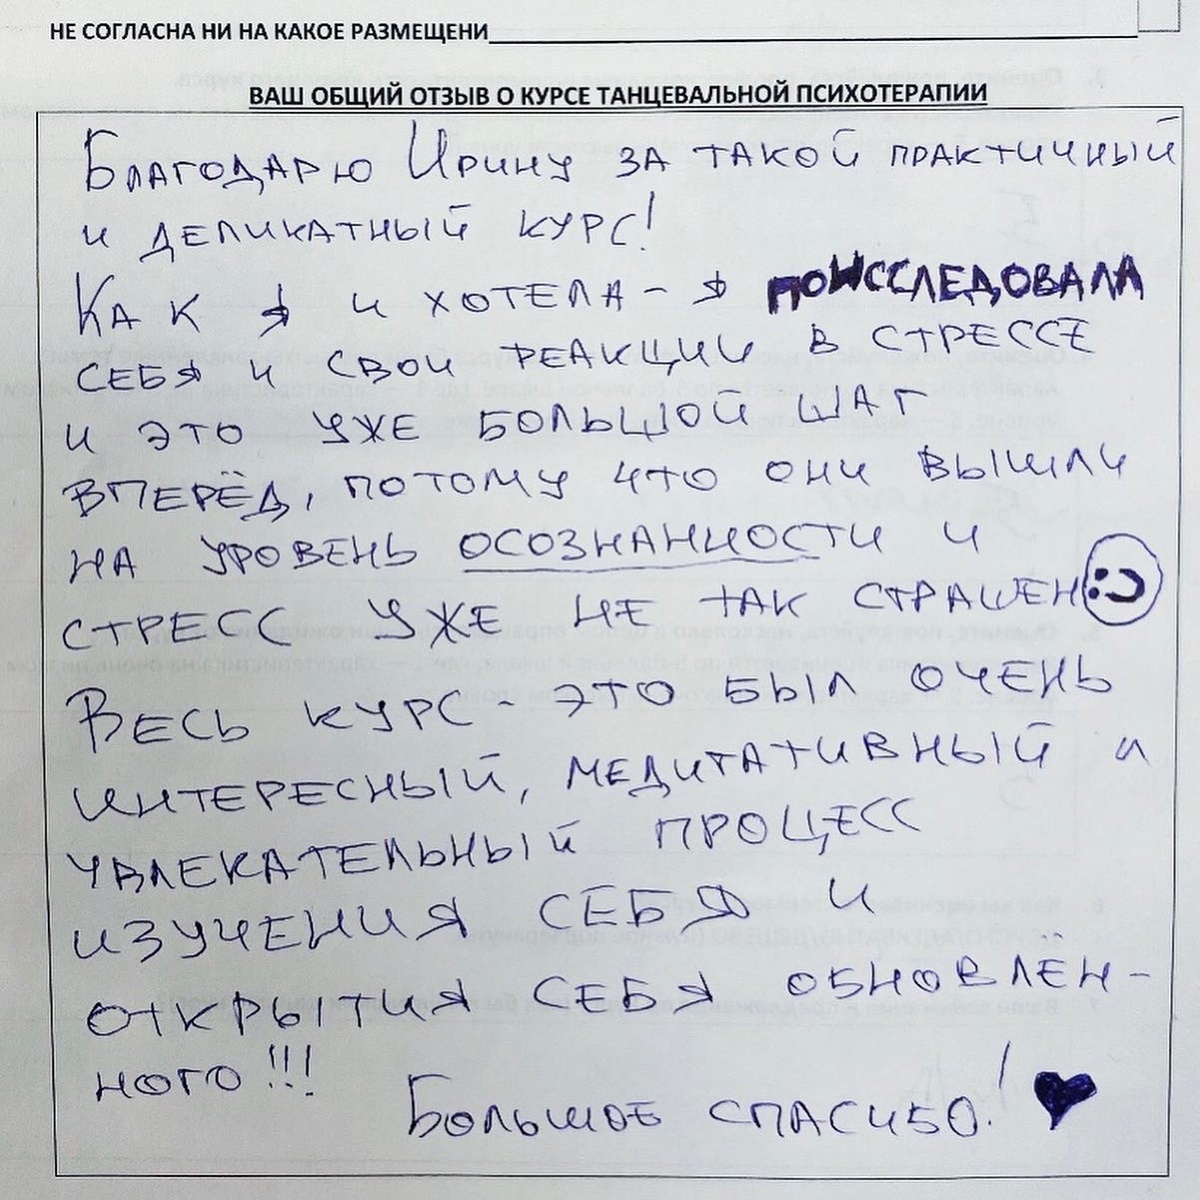 НЕ СОГЛАСНА НИ НА КАКОЕ РАЗМЕЩЕНИ
ВАШ ОБЩИЙ ОТЗЫВ О КУРСЕ ТАНЦЕВАЛЬНОЙ ПСИХОТЕРАПИИ
Благодарю Ирину за такой практичный
и деликатный курс!
Как я и хотела - я поисследовала
себя и свои реакции в стрессе
и это уже большой шаг
вперёд, потому что они вышли
на уровень осознанности и
стресс уже не так страшен :)
Весь курс - это был очень
интересный, медитативный и
увлекательный процесс
изучения себя и
открытия себя обновлен-
ного!!!
Большое спасибо! ♥